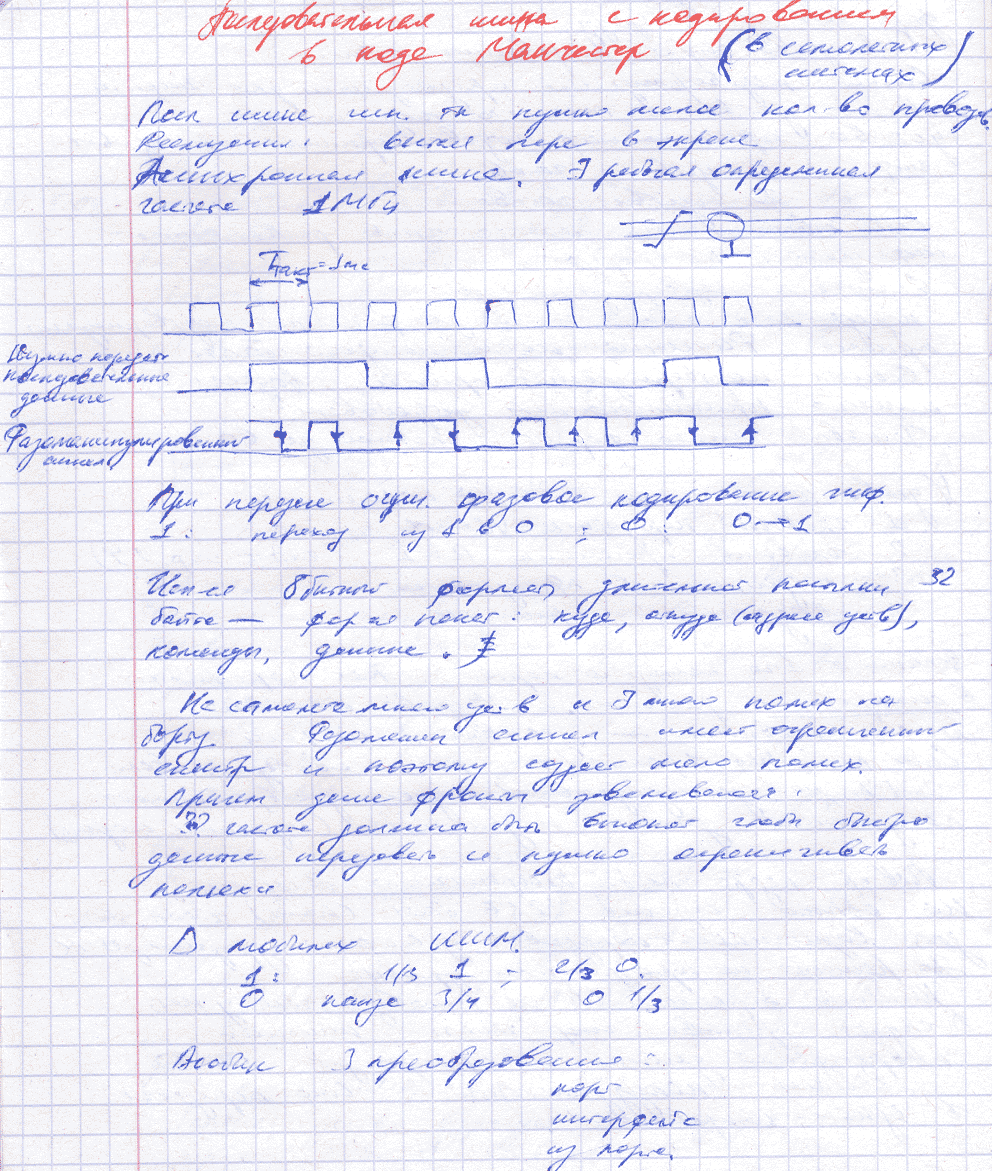 Последовательная шина с кодированием
в коде Манчестер (в самолетных
системах)
Посл шине исп. тк нужно малое кол-во проводов.
Реализация: витая пара в экране
Асинхронная шина. ∃ рабочая определенная
частота 1МГц
Tтакт = 1мс
Нужно передать
последовательные
данные
Фазоманипулированный
сигнал
При передаче фазовое кодирование
1: переход из 1 в 0 ; 0: 0→1
8битный формат, посылки 32
байта — пакет: куда, откуда (адреса устр-в),
команды, данные.
На самолете много устр-в и ∃ много помех на
борту. сигнал имеет ограниченный
спектр и поэтому создает мало помех.
Причем даже фронты
частота должна быть чтобы быстро
данные передавать и нужно ограничивать
помехи
В мобилах ШИМ.
1: 1/3 1 ; 2/3 0.
0 пауза 3/4 0 1/3
∃ преобразования :
порт
интерфейс
из порта.